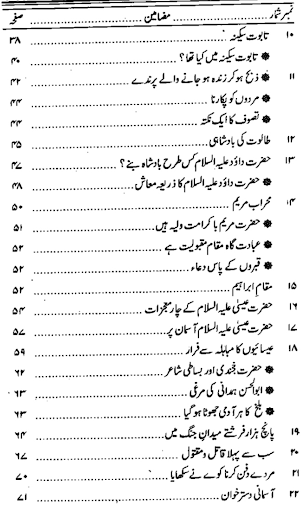 نمبر شمار مضامین صفحہ
۱۰ تابوت سکینہ ۳۸
● تابوت سکینہ میں کیا تھا؟ ۴۰
۱۱ ذبح ہو کر زندہ ہو جانے والے پرندے ۴۲
● مردوں کو پکارنا ۴۴
● تصوف کا ایک نکتہ ۴۴
۱۲ طالوت کی بادشاہی ۴۵
۱۳ حضرت داؤد علیہ السلام کس طرح بادشاہ بنے؟ ۴۷
● حضرت داؤد علیہ السلام کا ذریعہ معاش ۴۸
۱۴ محراب مریم ۵۰
● حضرت مریم با کرامت ولیہ ہیں ۵۱
● عبادت گاہ مقام مقبولیت ہے ۵۲
● قبروں کے پاس دعاء ۵۲
۱۵ مقام ابراہیم ۵۲
۱۶ حضرت عیسیٰ علیہ السلام کے چار معجزات ۵۴
۱۷ حضرت عیسیٰ علیہ السلام آسمان پر ۵۷
۱۸ عیسائیوں کا مباہلہ سے فرار ۵۹
● حضرت خجندی اور بساطی شاعر ۶۲
● ابوالحسن ہمدانی کی مرغی ۶۳
● بلخ کا ہر آدمی جھوٹا ہو گیا ۶۳
۱۹ پانچ ہزار فرشتے میدان جنگ میں ۶۴
۲۰ سب سے پہلا قاتل و مقتول ۶۷
۲۱ مردے دفن کرنا کوے نے سکھایا ۷۰
۲۲ آسمانی دسترخوان ۷۱